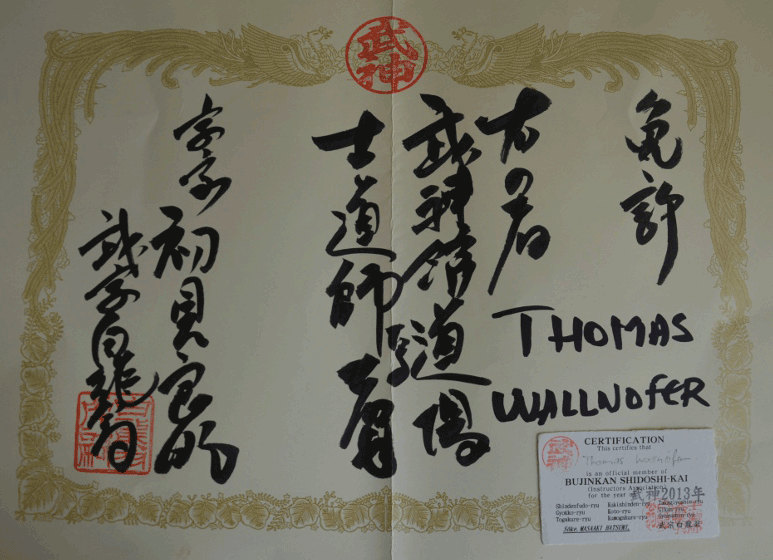 武神
免許
右の者
THOMAS
WALLNOFER
武神館道場
士道師
宗家 初見良昭
武宗白龍翁
CERTIFICATION
This certifies that
Thomas Wallnofer
is an official member of
BUJINKAN SHIDOSHI-KAI
(Instructors Association)
for the year 武神2013年
Shindenfudo-ryu Kukishinden-ryu
Gyokko-ryu Koto-ryu
Togakure-ryu Kumogakure-ryu
Soke MASAAKI HATSUMI.